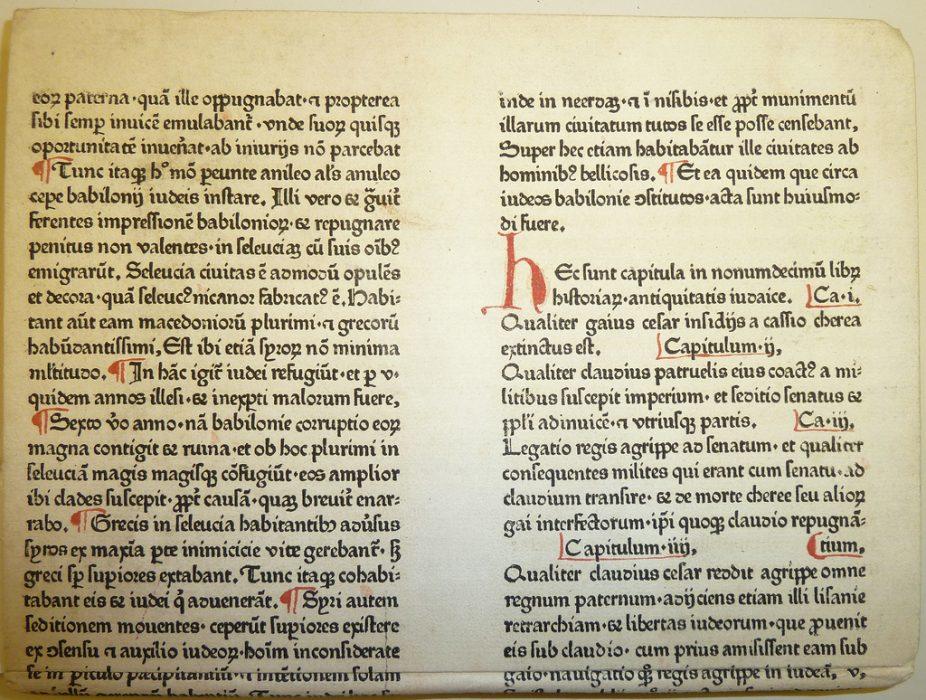 eoꝝ paterna·quā ille oꝑpugnabat·⁊ propterea
sibi semꝑ inuicē emulabant᷑·vnde suoꝝ quisqꝫ
oportunitatē inueniat·ab iniurijs nō parcebat
¶Tunc itaqꝫ hͦ mō ꝑeunte anileo al's anuleo
cepe babilonij iudeis instare. Illi vero ⁊ g̃uit᷑
ferentes impressionē babilonioꝝ·⁊ repugnare
penitus non valentes·in seleuciaꝫ cū suis oībꝰ
emigrarūt. Seleucia ciuitas ē admodū opulēs
et decora·quā seleucꝰ nicanor fabricatꝰ ē. Habi-
tant aūt eam macedonioꝝ plurimi·⁊ grecorū
habūdantissimi, Est ibi etiā syroꝝ nō minima
ml̄titudo. ¶In hāc igit᷑ iudei refugiūt·et ꝑ v·
quidem annos illesi·⁊ inexpti malorum fuere,
¶Sexto v̓o anno·nā babilonie corruptio eoꝝ
magna contigit ⁊ ruina·et ob hoc plurimi in
seleuciā magis magisqꝫ cōfugiūt·eos amplior
ibi clades suscepit·ꝓpt᷑ causā·quaꝫ breuit᷑ enar-
rabo. ¶Grecis in seleucia habitantibꝰ adūsus
syros ex maxīa ꝑte inimicicie vite gerebant᷑·sꝫ
greci sꝑ suꝑiores extabant. Tunc itaqꝫ cohabi-
tabant eis ⁊ iudei q̇ aduenerāt. ¶Syri autem
seditionem mouentes·ceperūt suꝑiores existere
ex ↄsensu ⁊ auxilio iudeoꝝ·hoīm inconsiderate
se in ꝑiculo p̄cipitantiū·⁊ intētionem solam
inde in neerdaꝫ·⁊ ī nisibis·et ꝓpt᷑ munimentū
illarum ciuitatum tutos se esse posse censebant,
Super hec etiam habitabātur ille ciuitates ab
hominibꝰ bellicosis. ¶Et ea quidem que circa
iudeos babilonie ↄstitutos·acta sunt huiusmo-
di fuere.
hEc sunt capitula in nonumdecimū libꝝ
historiaꝝ·antiquitatis iudaice. Ca·i.
Qualiter gaius cesar insidijs a cassio cherea
extinctus est. Capitulum·ij,
Qualiter claudius patruelis eius coactꝰ a mi-
litibus suscepit imperium·et seditio senatus ⁊
ppl̓i adinuicē·⁊ vtriusqꝫ partis. Ca·iij.
Legatio regis agrippe ad senatum·et qualiter
consequentes milites qui erant cum senatu·ad
claudium transire·⁊ de morte cheree seu alioꝝ
gai interfectorum·ip̄i quoqꝫ claudio repugnā-
Capitulum·iiij, tium.
Qualiter claudius cesar reddit agrippe omne
regnum paternum·adijciens etiam illi lisanie
retrarchiam·⁊ libertas iudeorum·que ꝓuenit
eis sub claudio·cum prius amisissent eam sub
gaio·nauigatio qꝫ regis agrippe in iudeā, v,